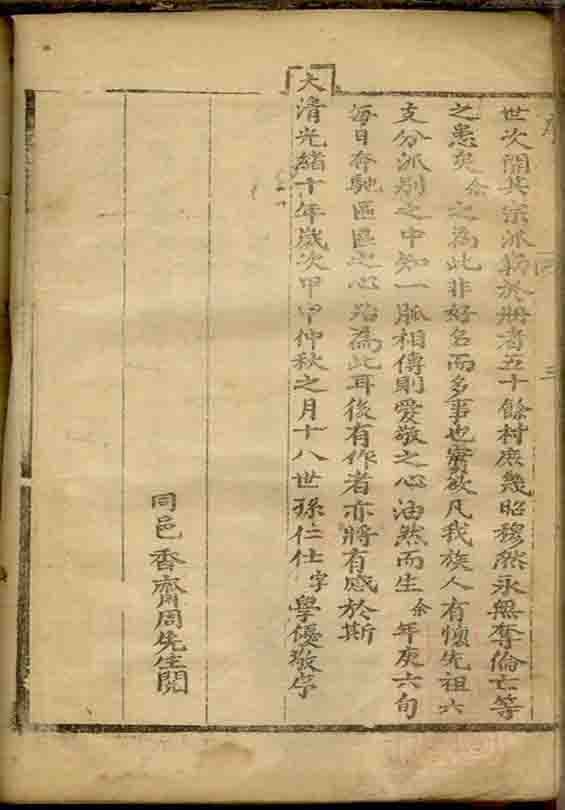 世次開其宗派篤於將者五十餘村庶幾昭穆然永無奪倫亡等
之患矣余之為此非好名而多事也實欲凡我族人有懷先祖六
支分派別之中知一脈相傳則愛敬之心油然而生余年庚六旬
每日奔馳區區之心殆為此耳後有作者亦將有感於斯
大清光緒十年歲次甲申仲秋之月十八世孫仁仕字學優敬序
同邑香齋周先生閱